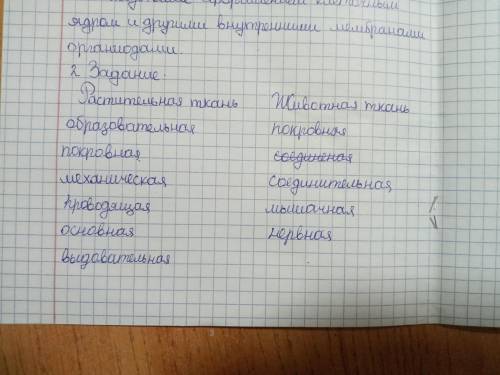 ядром и другими внутренними мембранами
органиодами.
2. Задание.
Растительная ткань Животная ткань
образовательная покровная
покровная соединеная
механическая соединительная
проводящая мышачная
основная нервная
выдовательная